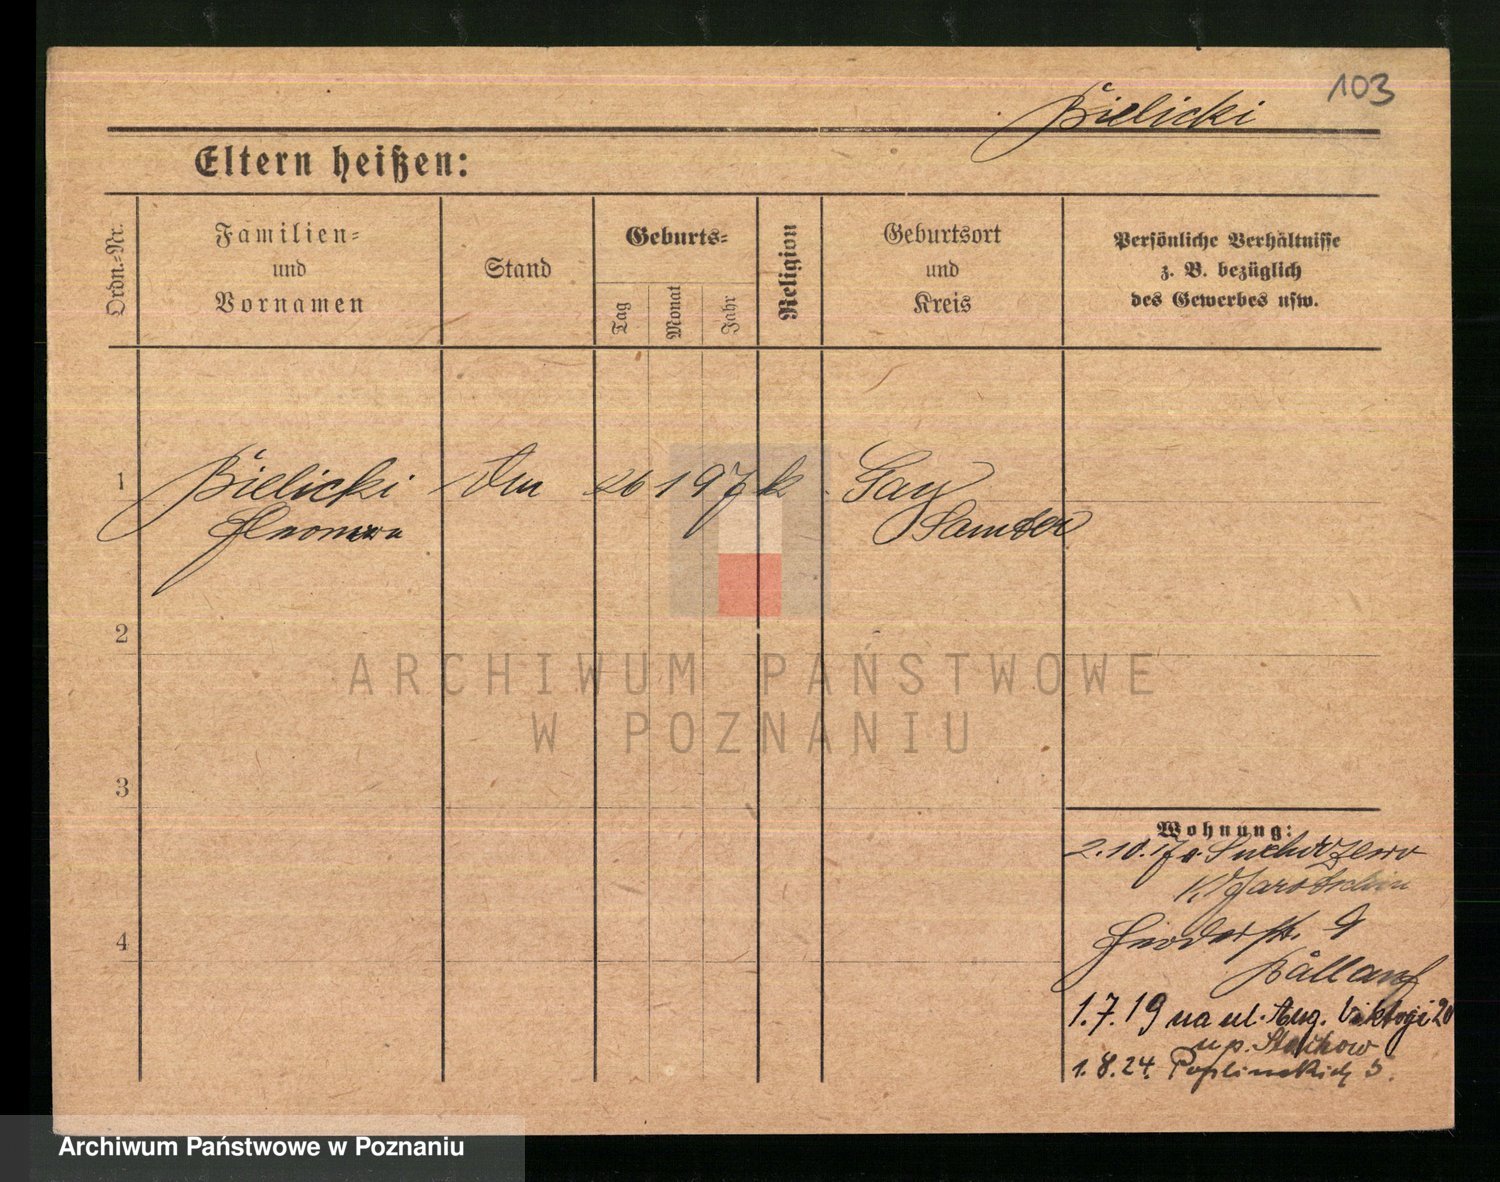 103
Bielicki
Eltern heißen:
Ordn.-Nr.
Familien-
und
Vornamen
Stand
Geburts-
Tag
Monat
Jahr
Religion
Geburtsort
und
Kreis
Persönliche Verhältnisse
z. B. bezüglich
des Gewerbes usw.
1
Bielicki
26 1 97 k
Gay
Samter
2
3
4
ARCHIWUM PAŃSTWOWE
W POZNANIU
Wohnung:
2.10.17
Jarotschin
9
1.7.19 na ul. Aug. Viktorji 20
u p.
1.8.24. Poplinskich 5.
Archiwum Państwowe w Poznaniu